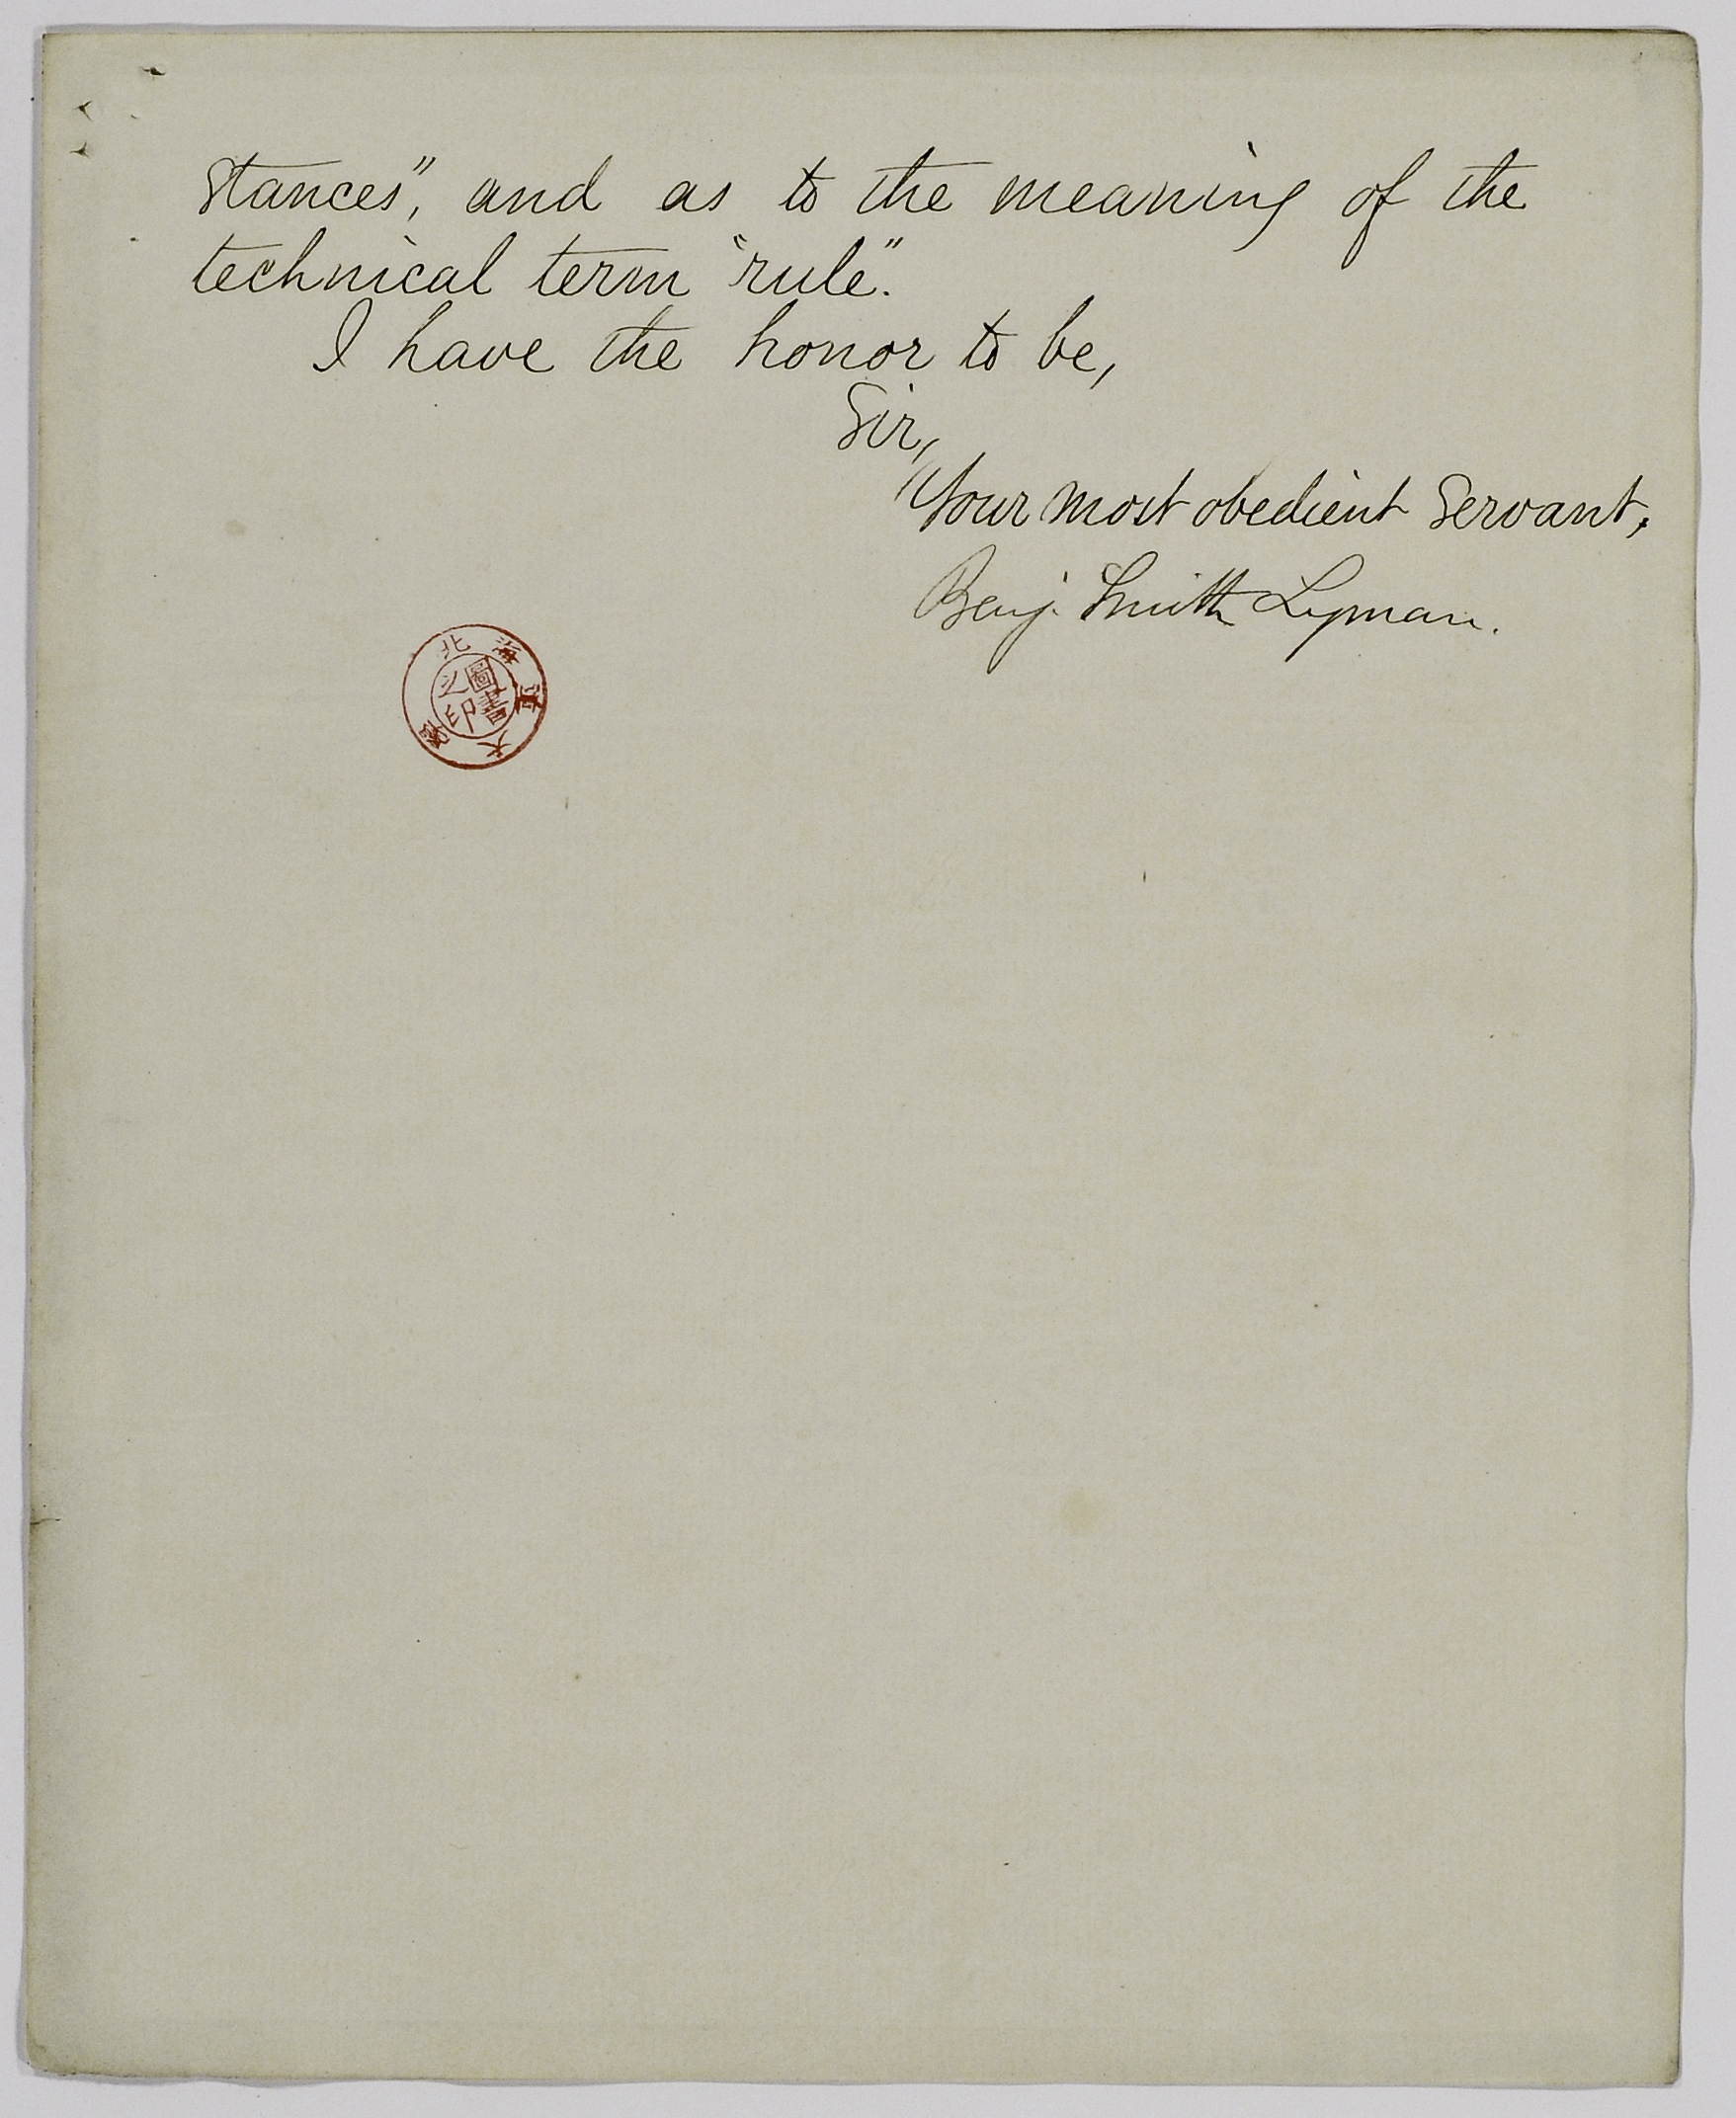 stances", and as to the meaning of the
technical term "rule".
I have the honor to be,
Sir,
Your most obedient servant,
Benj. Smith Lyman.
北海道大學
圖書之印